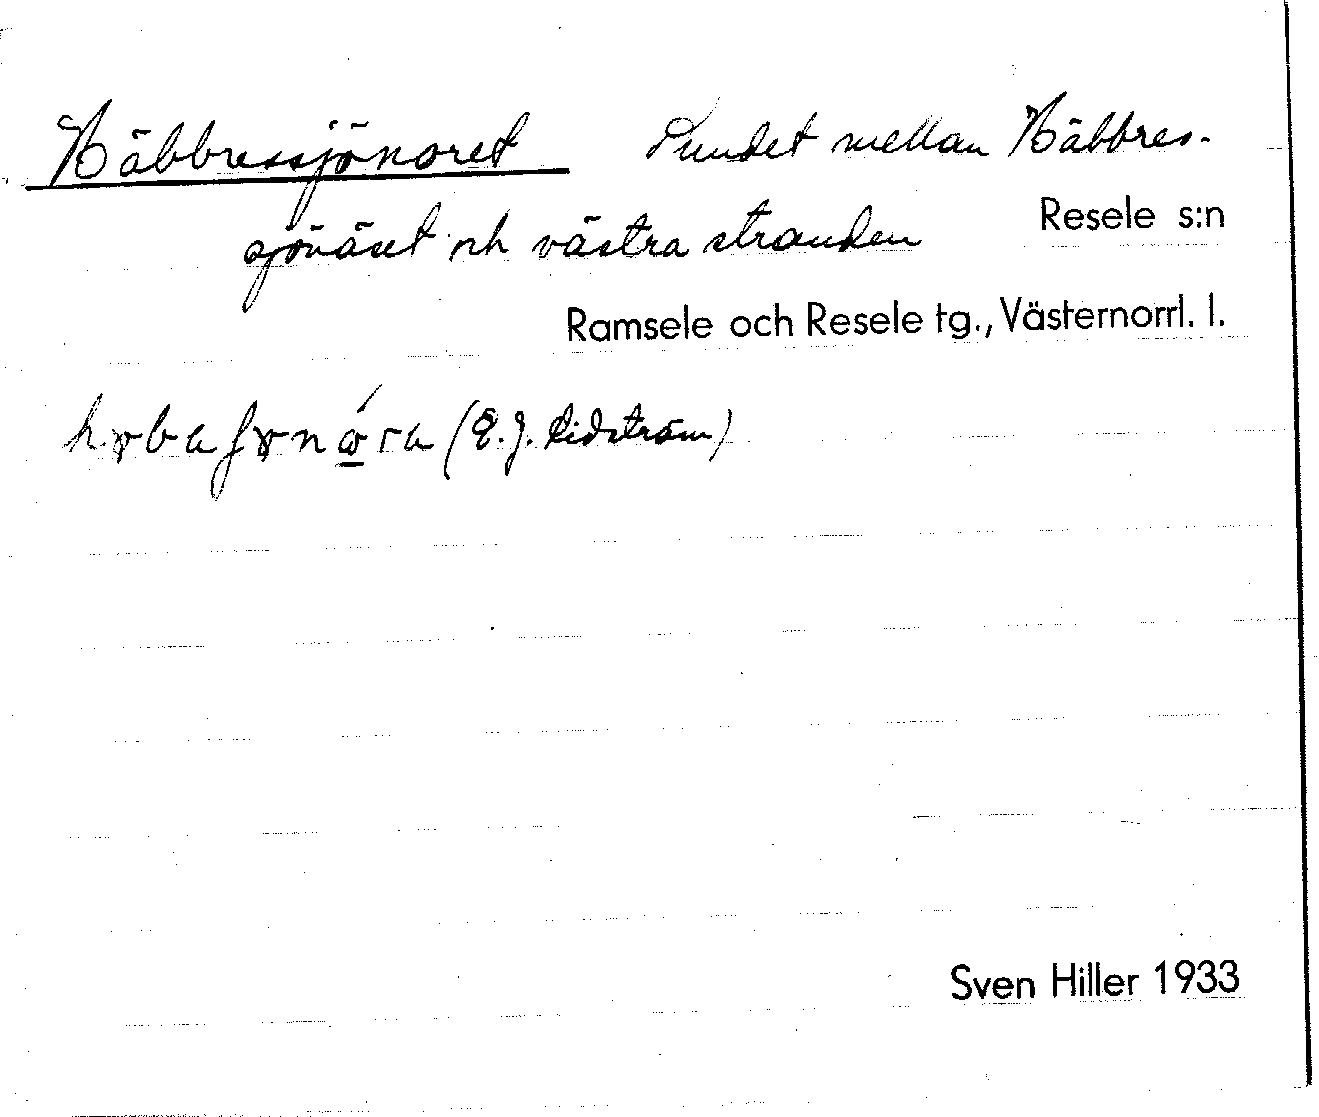 Häbbressjönoret Sundet mellan Häbbres-
Resele s:n
sjönäset och västra stranden
Ramsele och Resele tg., Västernorrl. l.
(E. J. Lidström)
Sven Hiller 1933